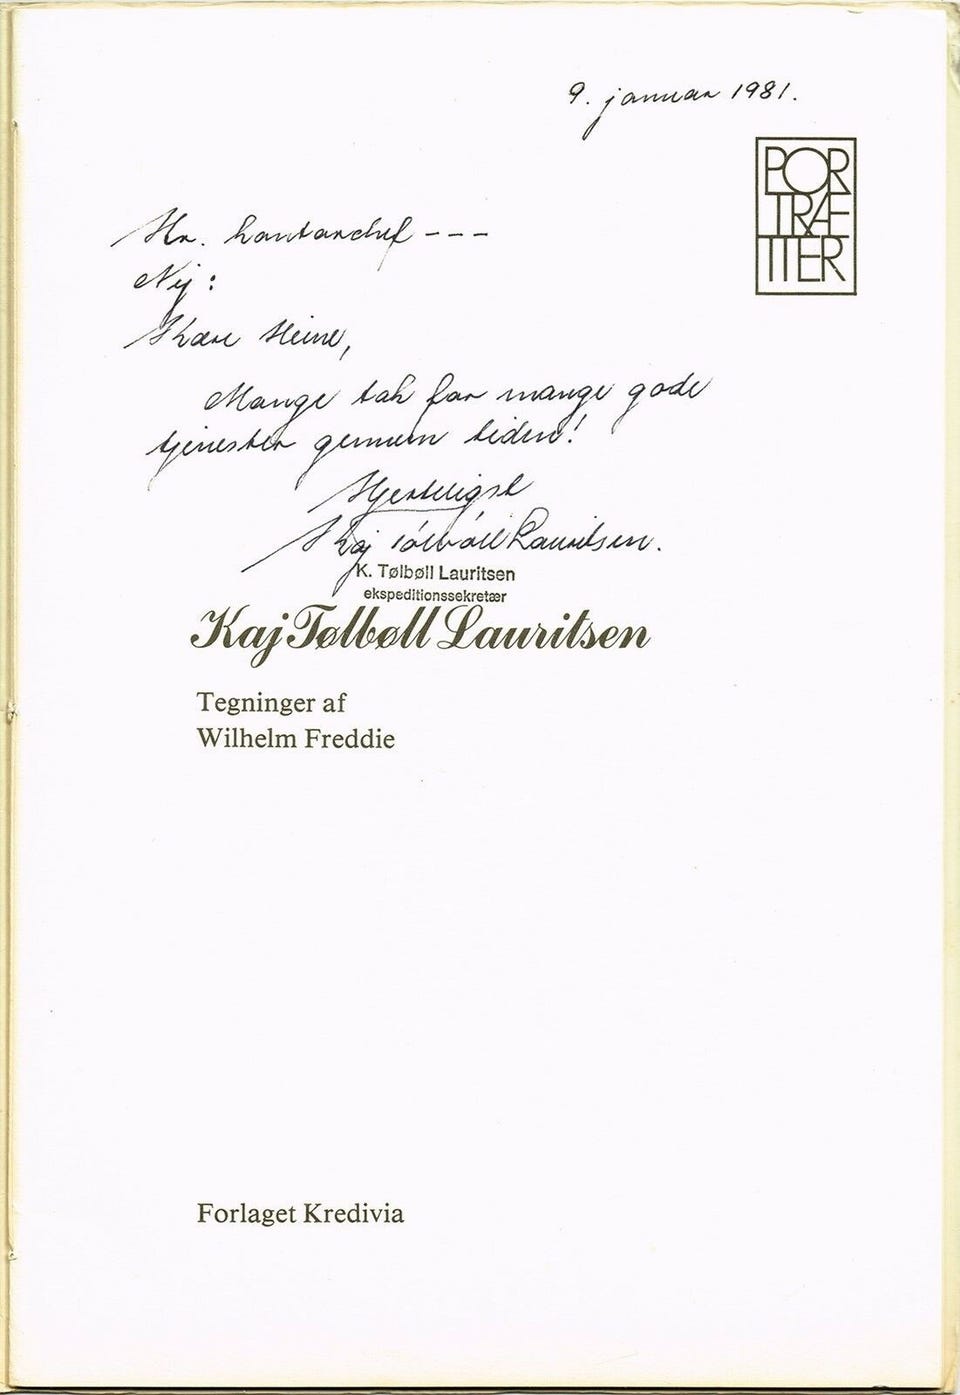 9. januar 1981.
POR
TRÆ
TTER
Hr. kontorchef ---
Nej:
Kære Heine,
Mange tak for mange gode
tjenester gennem tiden!
Hjerteligst
Kaj Tølbøll Lauritsen.
K. Tølbøll Lauritsen
ekspeditionssekretær
Kaj Tølbøll Lauritsen
Tegninger af
Wilhelm Freddie
Forlaget Kredivia